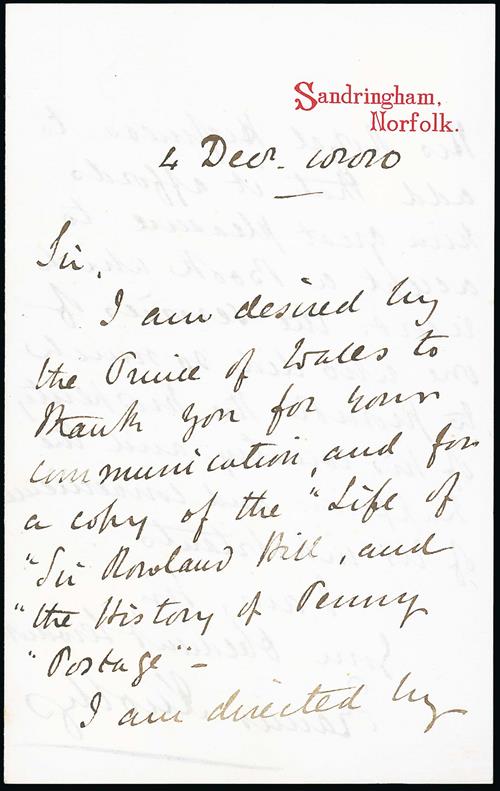 Sandringham,
Norfolk.
4 Decr. 1880
Sir,
I am desired by
the Prince of Wales to
thank you for your
communication, and for
a copy of the "Life of
"Sir Rowland Hill, and
"the History of Penny
"Postage" -
I am directed by